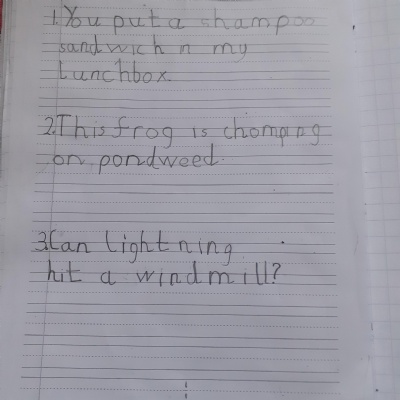 1. You put a shampoo
sandwich n my
Lunchbox.
2. This frog is chomping
on pondweed.
3. Can lightning
hit a windmill?